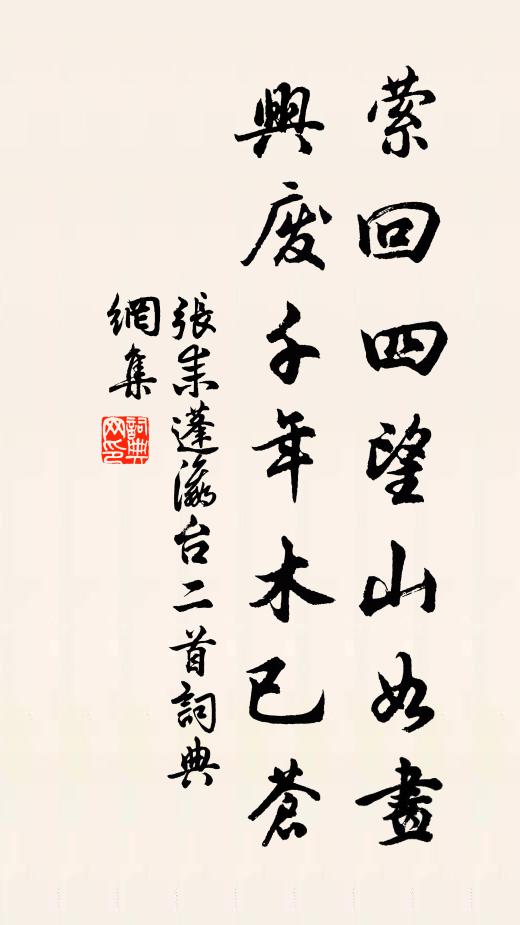 萦回四望山如畫
興废千年木已蒼
張耒蓬瀛台二首詞典
網集
詞典
网印